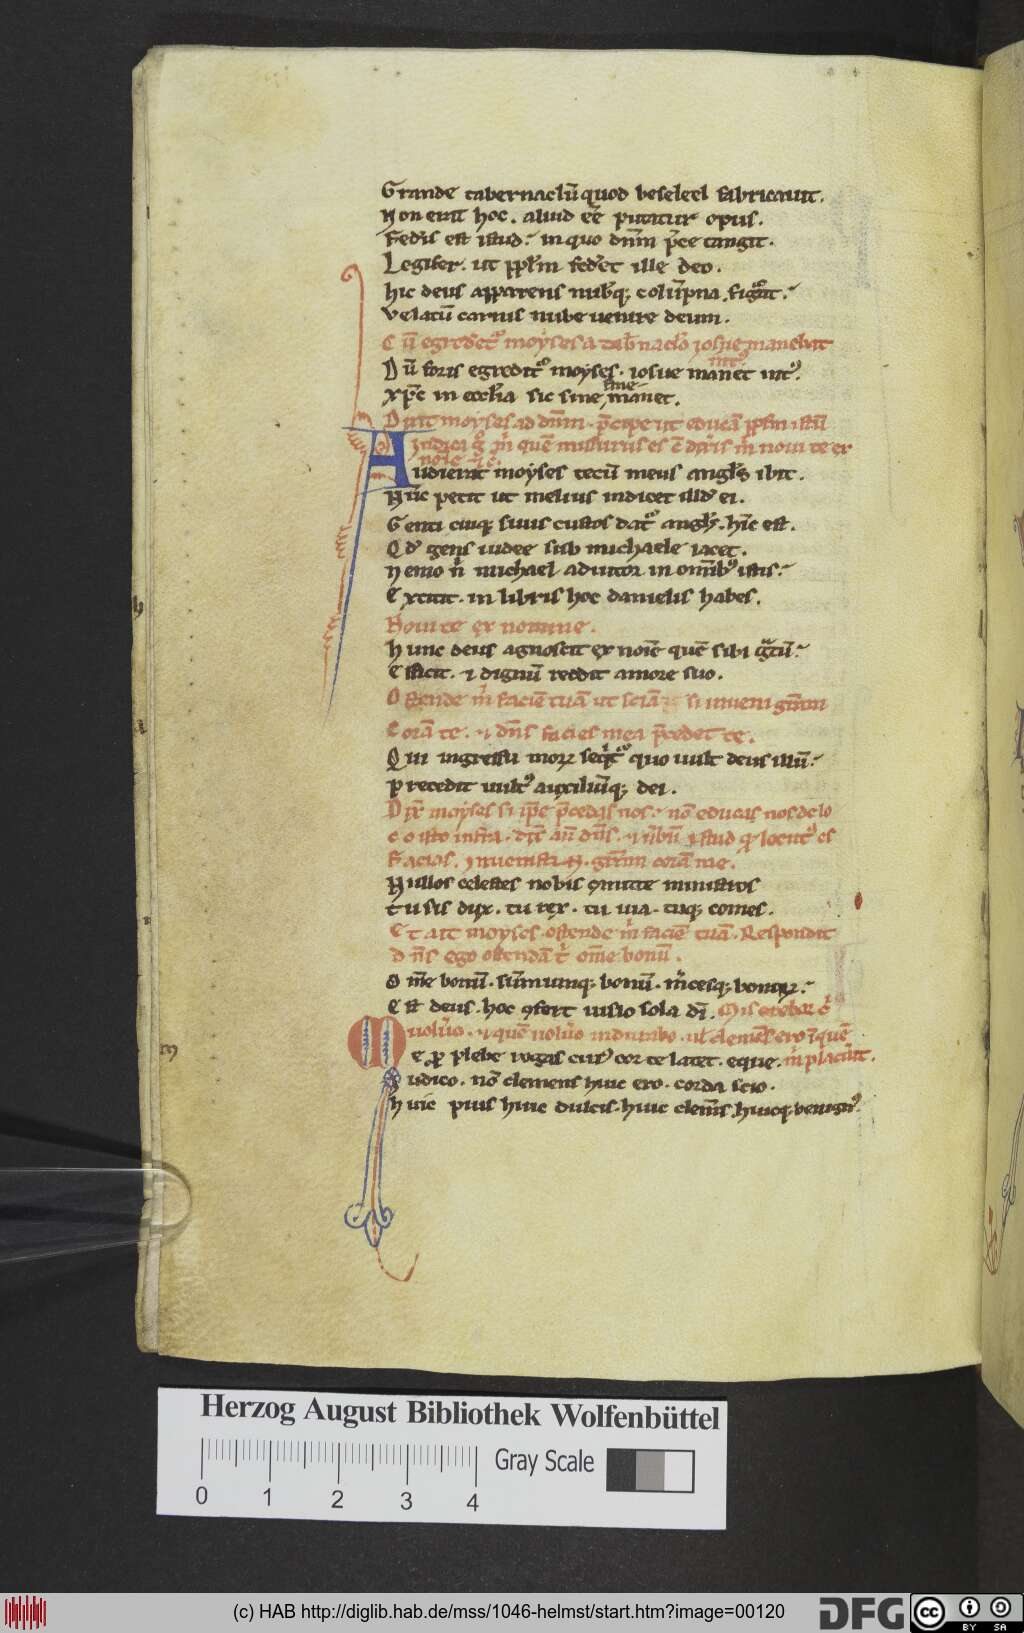 Grande tabernaclū quod beseleel fabricauit.
Non erit hoc. aliud eē putatur opus.
Federis est istud: in quo dnm p̄ce tangit.
Legifer. ut pplm federet ille deo.
hic deus apparens nubeq; colūpna figurat:
velatū carnis nube uenire deum.
Cū egrederet moyses a tabnaclo iosue manebat
intꝰ.
Dū foris egreditꝰ moyses. iosue manet intꝰ.
xpc in eccl̄ia sic sine fine manet.
Dixit moyses ad dnm. p̄cipe ut educā pplm istū
indica g̊ m̄ quē missurus es
nole
Audierat moyses tecū meus angls ibit.
Nūc petit ut melius indicet illd ei.
Genti cuiq; suus custos datꝰ angls. hic est.
Qd gens iudee sub michaele iacet.
Nemo n̄ michael adiutor in omībꝰ istis:
Extitit. in libris hoc danielis habes.
Noui te ex nomine.
hunc deus agnoscit ex noīe quē sibi gratū:
Efficit. ⁊ dignū reddit amore suo.
Ostende m̄ faciē tuā ut sciā si inueni grām
Corā te. ⁊ dns facies mea p̄cedet te.
Qui ingressū quo uult deus illū:
precedit uultꝰ auxiliūq; dei.
Dix̄ moyses si ip̄e p̄cedas nos: nō educas nos de lo
co isto
Facias. inuenisti grām corā me.
Nullos celestes nobis ꝯmitte ministros
tu sis dux. tu rex. tu uia. tuq; comes.
Et ait moyses. ostende m̄ faciē tuā. Respondit
dn̄s ego ostendā t̄ om̄e bonū.
Om̄e bonū. sūmumq; bonū. m̄cesq; bonorum:
Est deus. hoc ꝯfert uisio sola dī. Miserebor cꝰ
Muoluo. ⁊ quē uoluo
e ꝓ plebe rogas curꝰ cor te latet. eque. m̄ placuit.
iudico. nō clemens huic ero. corda scio.
huic pius huic dulcis. huic clemēs. huicq; benignꝰ
Herzog August Bibliothek Wolfenbüttel
Gray Scale
0 1 2 3 4
(c) HAB http://diglib.hab.de/mss/1046-helmst/start.htm?image=00120
DFG
cc BY SA